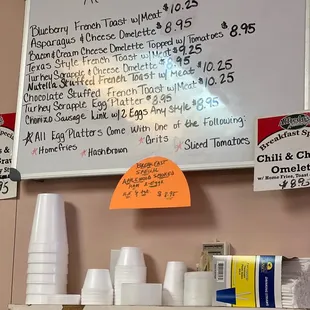 Blueberry French Toast w/Meat $10.25
Asparagus & Cheese Omelette $8.95
Bacon & Cream Cheese Omelette Topped w/ Tomatoes $8.95
Texas Style French Toast w/Meat $9.25
Turkey Scrapple & Cheese Omelette $8.95
Nutella Stuffed French Toast w/Meat $10.25
Chocolate Stuffed French Toast w/Meat $10.25
Turkey Scrapple Egg Platter $8.95
Chorizo Sausage Link w/ 2 Eggs Any Style $8.95
*All Egg Platters Come With One of the Following:
*Homefries *HashBrown *Grits *Sliced Tomatoes
Breakfast Spe
Chili & Ch
Omelet
w/ Home Fries,
Toast &
$8.95
BREAKFAST
SPECIAL